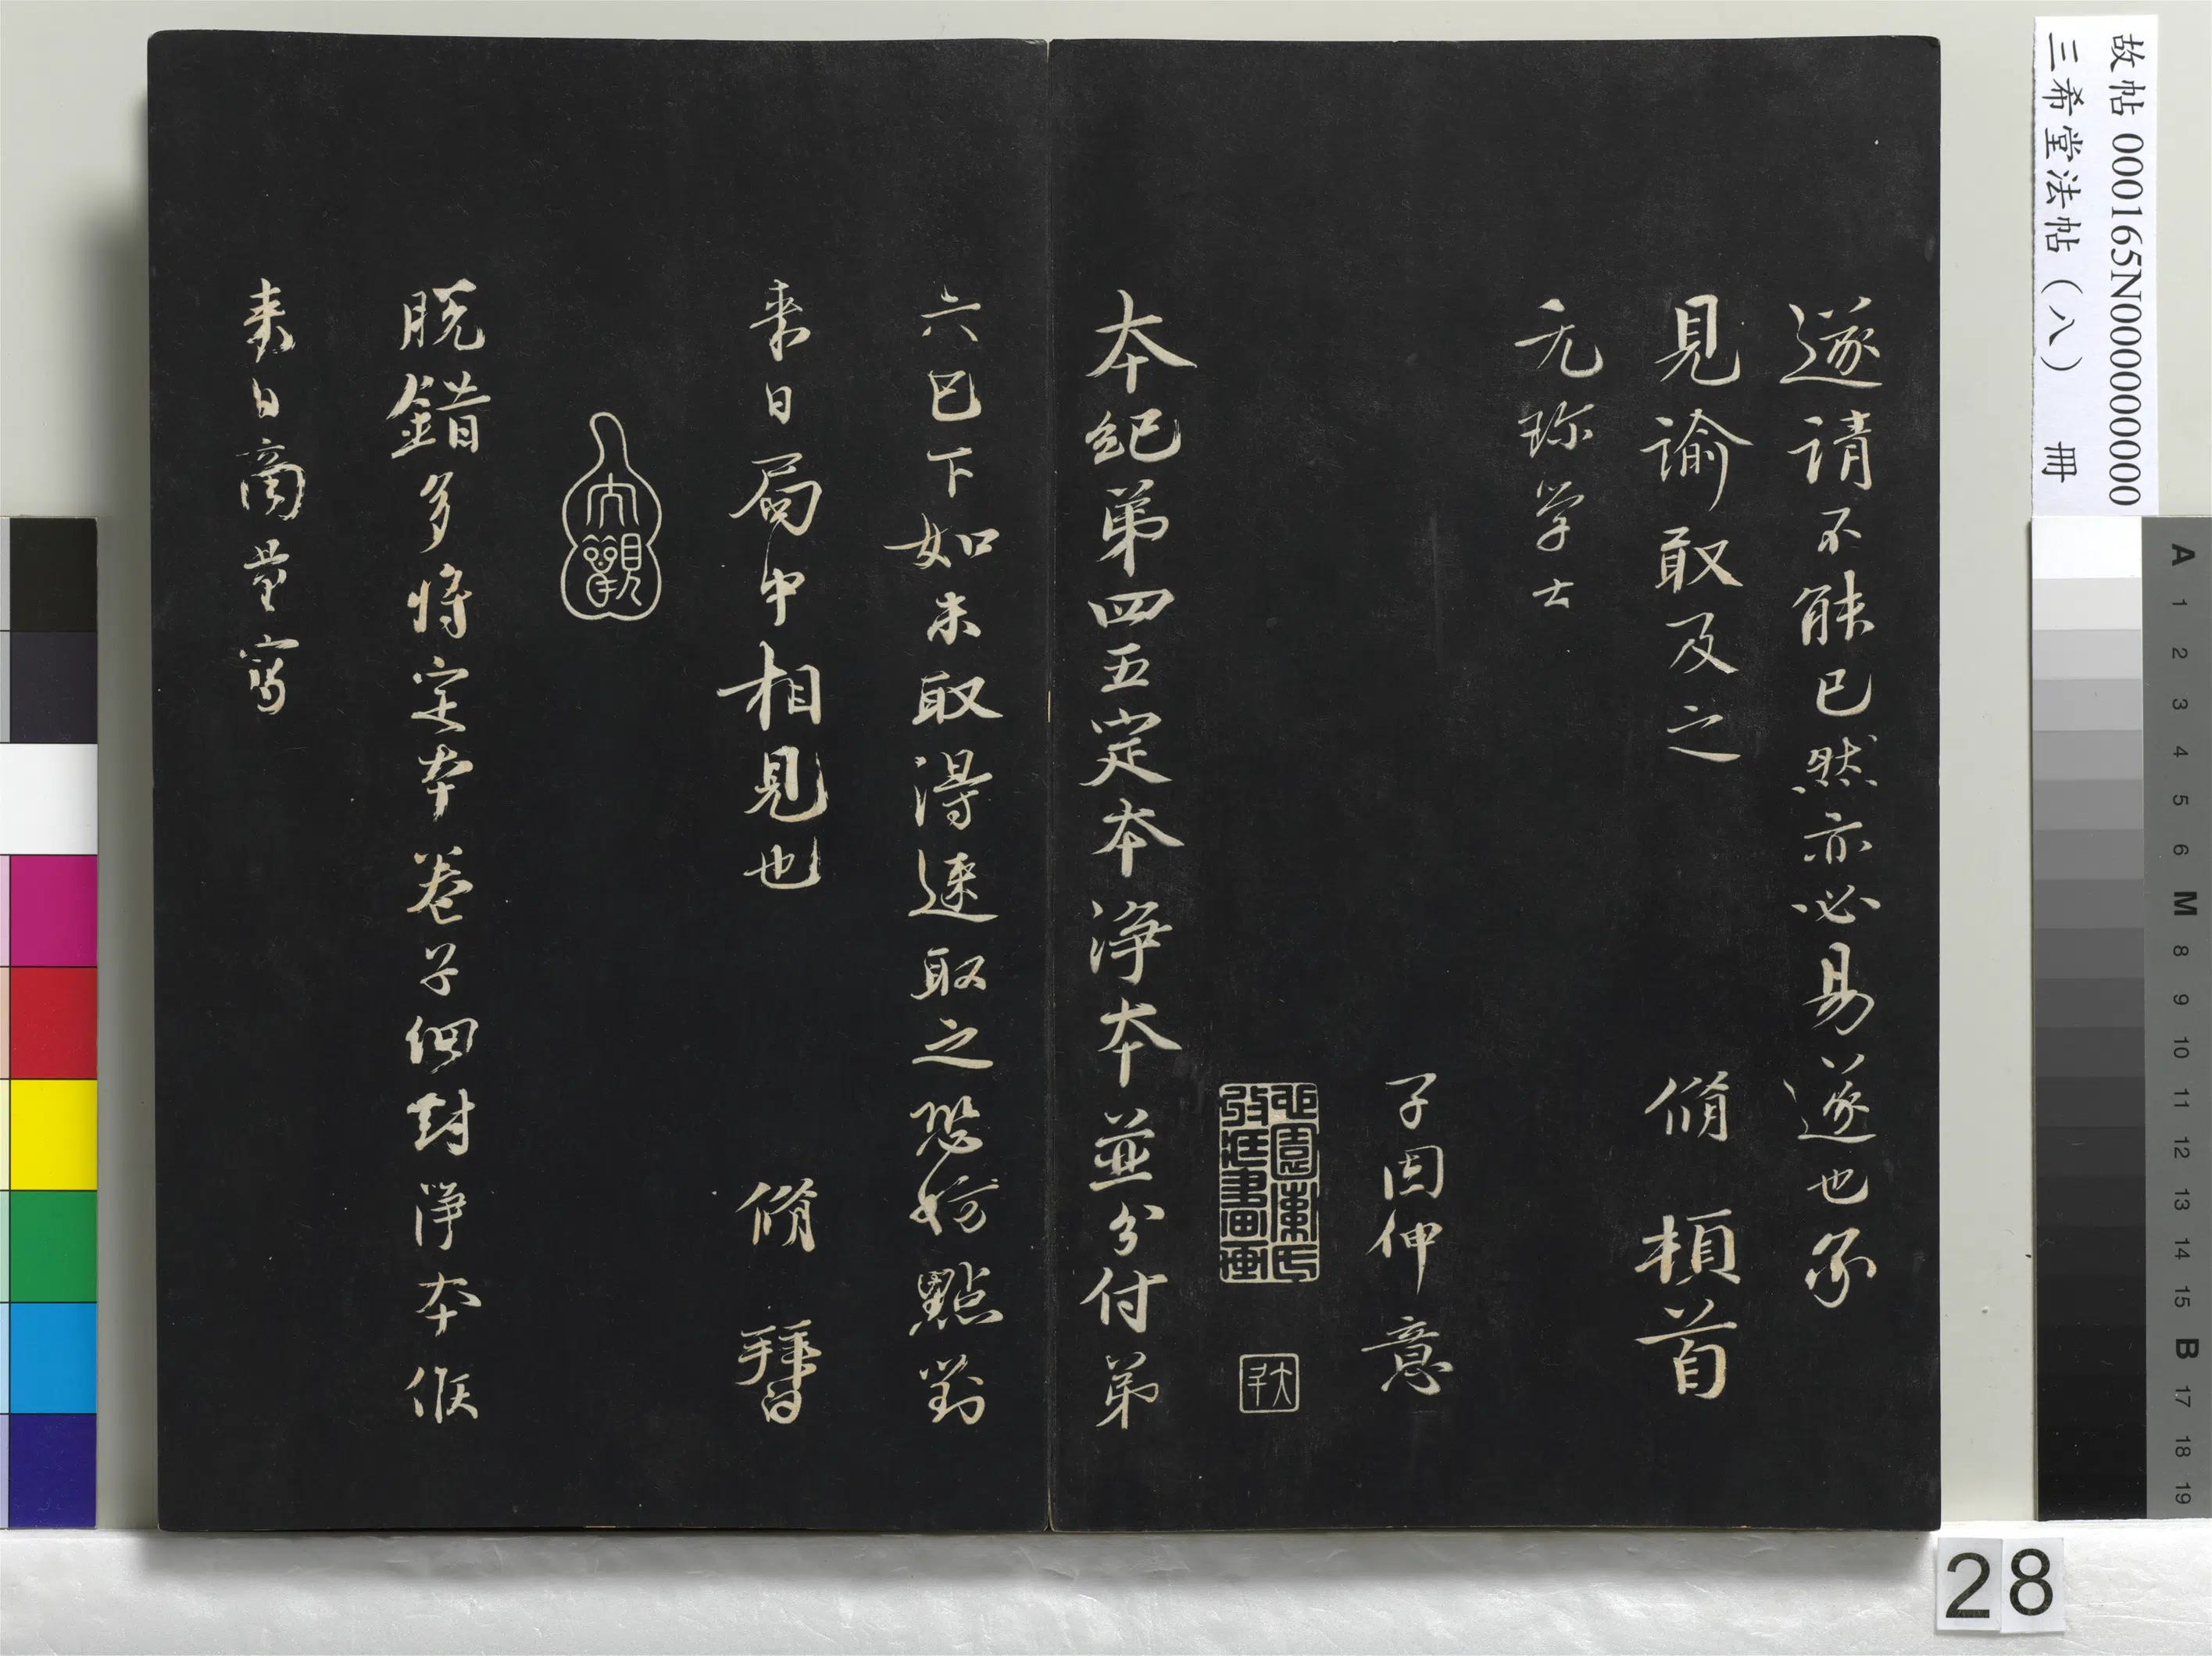 遂请不能已然亦必易遂也承
見諭敢及之 脩 頓首
元珍学士
子因仲意
本紀第四五定本淨本並分付弟
六已下如未取得速取之恐妨點對
来日局中相見也 脩 拜
大觀
脱錯多將定本卷子細對淨本俟
来日商量寫
故帖 000165N000000000
三希堂法帖（八） 冊
A 1 2 3 4 5 6 M 8 9 10 11 12 13 14 15 B 17 18 19
28